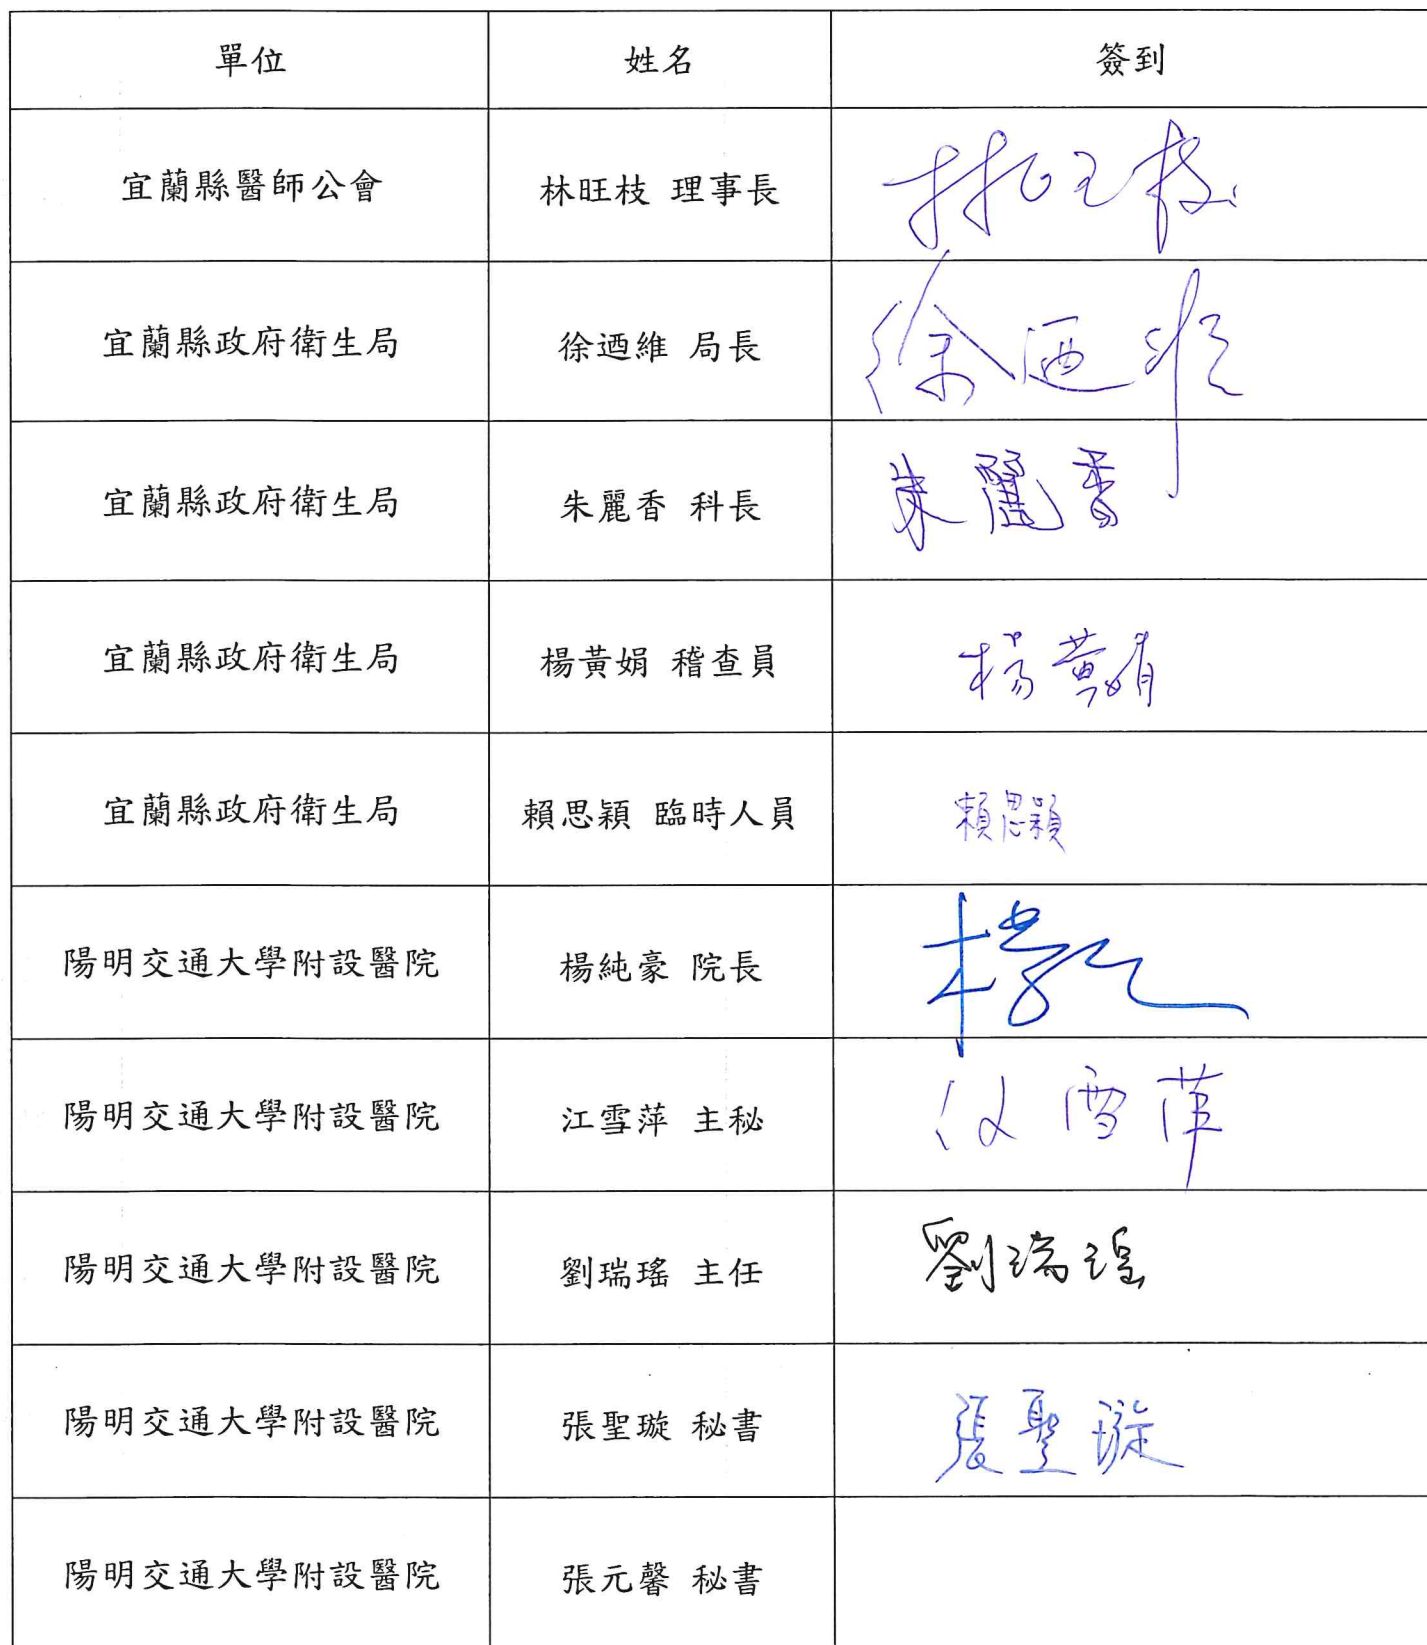 單位 姓名 簽到
宜蘭縣醫師公會 林旺枝 理事長 林旺枝
宜蘭縣政府衛生局 徐迺維 局長 徐迺維
宜蘭縣政府衛生局 朱麗香 科長 朱麗香
宜蘭縣政府衛生局 楊黃娟 稽查員 楊黃娟
宜蘭縣政府衛生局 賴思穎 臨時人員 賴思穎
陽明交通大學附設醫院 楊純豪 院長
陽明交通大學附設醫院 江雪萍 主秘 江雪萍
陽明交通大學附設醫院 劉瑞瑤 主任 劉瑞瑤
陽明交通大學附設醫院 張聖璇 秘書 張聖璇
陽明交通大學附設醫院 張元馨 秘書